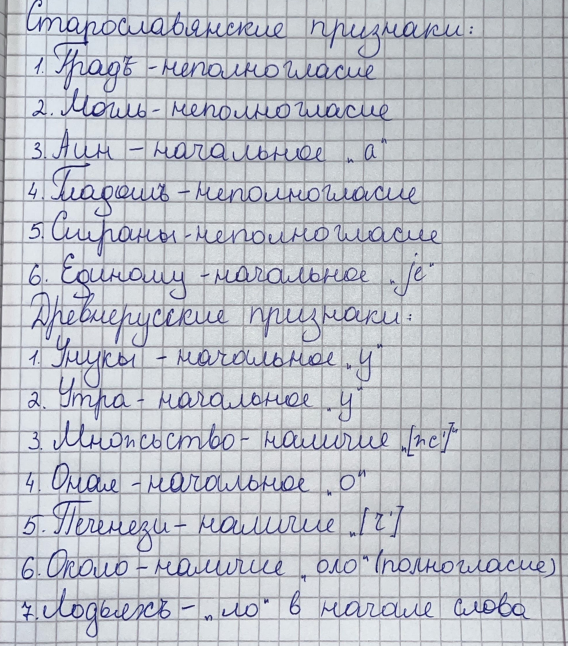 Старославянские признаки:
1. Градъ - неполногласие
2. Могль - неполногласие
3. Аин - начальное „а"
4. Гладомъ - неполногласие
5. Страны - неполногласие
6. Единому - начальное „je"
Древнерусские признаки:
1. Унукы - начальное „у"
2. Утра - начальное „у"
3. - наличие
4. - начальное „о"
5. Печенези - наличие
6. Около - наличие „оло" (полногласие)
7. Лодьяхъ - „ло" в начале слова